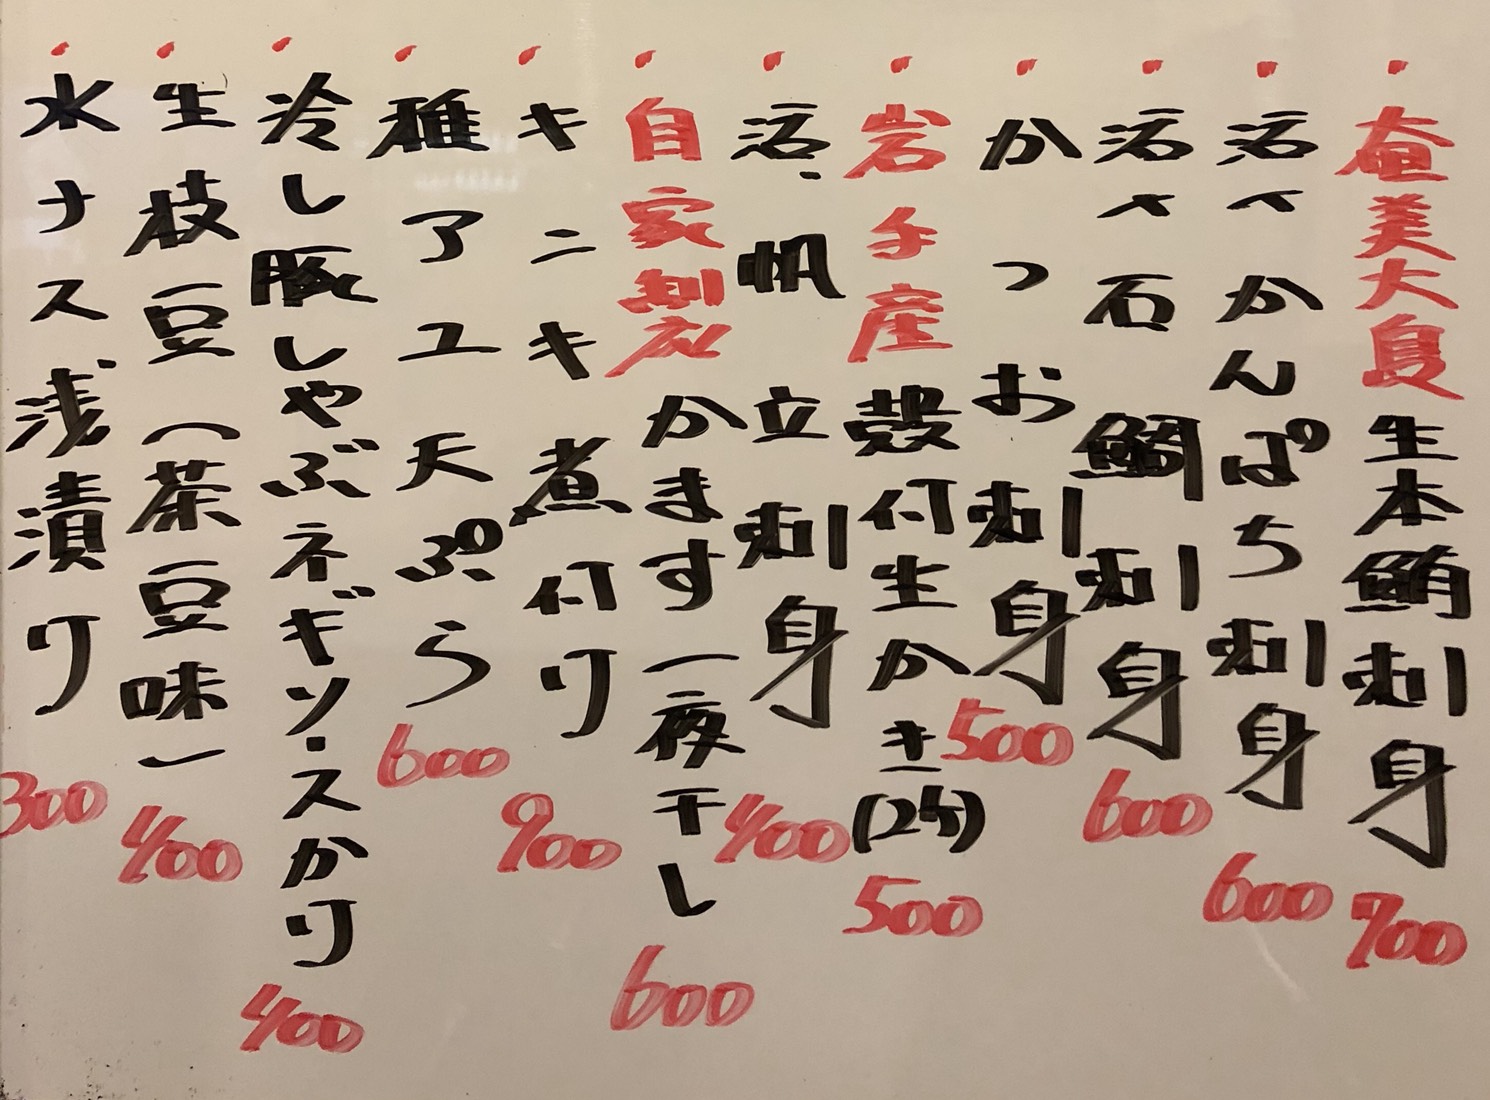 奄美大島生本鮪刺身 700
活〆かんぱち刺身 600
活〆石鯛刺身 600
かつお刺身 500
岩手産殻付生かき(2ケ) 500
活帆立刺身 400
自家製かます一夜干し 600
キンキ煮付け 900
稚アユ天ぷら 600
冷し豚しゃぶネギソースかけ 400
生枝豆(茶豆味) 400
水ナス浅漬け 300